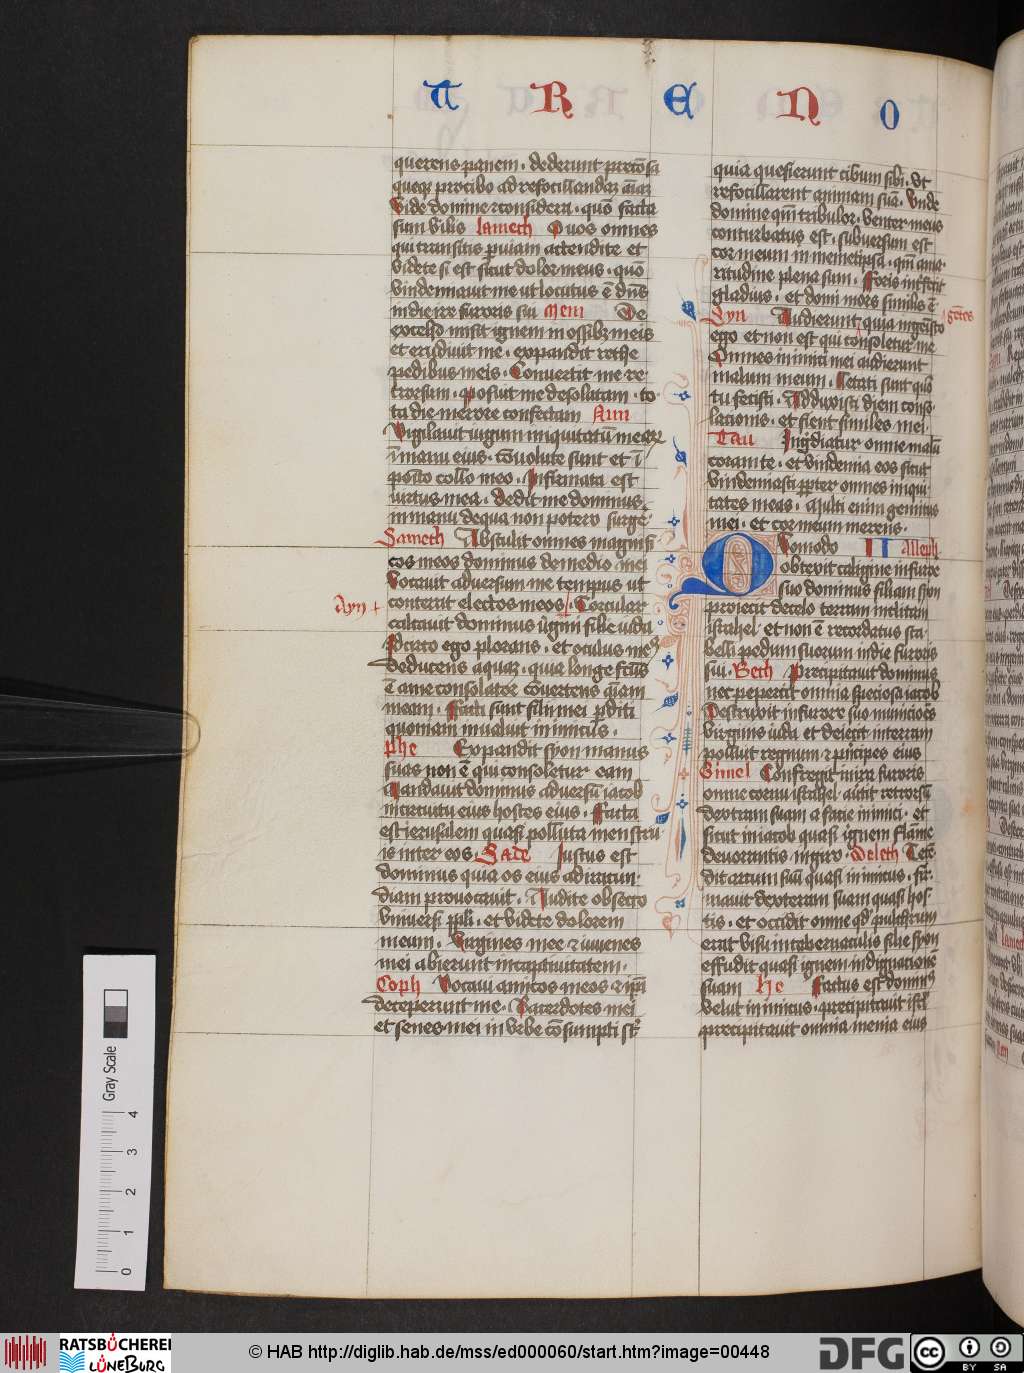 T R E N O
querens panem . dederunt preciosa
queq; pro cibo ad refocillandaz aiaz
Vide domine et considera . quo facta
sum vilis Lamech O uos omnes
qui transitis p uiam attendite et
videte si est sicut dolor meus . quo
vindemiauit me ut locutus e dns
in die ire furoris sui Mem De
excelso misit ignem in ossib; meis
et erudiuit me . expandit rethe
pedibus meis . Conuertit me re
trorsum . posuit me desolatam . to
ta die merore confectam Nun
Vigilauit iugum iniquitatu mear
i manu eius . conuolute sunt et i
posito collo meo . Infirmata est
uirtus mea . Dedit me dominus
in manu de qua non potero surge
Samech Abstulit omnes magnifi
cos meos dominus de medio mei
Vocauit aduersum me tempus ut
Ayn + contereret electos meos . Torcular
calcauit dominus ugini filie iuda
Idcirco ego plorans . et oculus meus
deducens aquaz . quia longe fcus
e a me consolator conuertens aiam
meam . Facti sunt filii mei pditi
quoniam inualuit inimicus .
phe Expandit syon manus
suas non e qui consoletur eam
Mandauit dominus aduersu iacob
in circuitu eius hostes eius . Facta
est ierusalem quasi polluta menstru
is inter eos . Sade Iustus est
dominus quia os eius ad iracun
diam prouocauit . Audite obsecro
vniuersi ppli . et videte dolorem
meum . Virgines mee et iuuenes
mei abierunt in captiuitatem .
Coph Vocaui amicos meos et ipi
deceperunt me . Sacerdotes mei
et senes mei in vrbe consumpti st
quia quesierunt cibum sibi . vt
refocillarent animam sua . Vide
domine qm tribulor . venter meus
conturbatus est . subuersum est
cor meum in memetipsa . qm ama
ritudine plena sum . Foris interficit
gladius . et domi mors similis e
Syn Audierunt quia ingemisco gentes
ego et non est qui consoletur me
Omnes inimici mei audierunt
malum meum . Letati sunt quo
tu fecisti . Adduxisti diem conso
lationis . et fient similes mei .
Tau Ingrediatur omne malu
coram te . et vindemia eos sicut
vindemiasti propter omnes iniqui
tates meas . Multi enim gemitus
mei . et cor meum merens .
Quomodo II Alleph
obtexit caligine in furore
suo dominus filiam syon
proiecit de celo terram inclitam
israhel et non e recordatus sca
belli pedum suorum in die furoris
sui . Beth Precipitauit dominus
nec pepercit omnia speciosa iacob
Destruxit in furore suo municiones
virginis iuda et deiecit in terram
polluit regnum et principes eius
Gimel Confregit in ira furoris
omne cornu israhel . auertit retrorsu
dexteram suam a facie inimici . et
succendit in iacob quasi ignem flamme
deuorantis in giro . Deleth Teten
dit arcum suu quasi inimicus . fir
mauit dexteram suam quasi hos
tis . et occidit omne qd pulchrum
erat visu in tabernaculis filie syon
effudit quasi ignem indignacione
suam He Factus est dominus
velut inimicus . precipitauit isrl
precipitauit omnia menia eius
Gray Scale
0 1 2 3 4
RATSBÜCHEREI LÜNEBURG
© HAB http://diglib.hab.de/mss/ed000060/start.htm?image=00448
DFG
cc BY SA